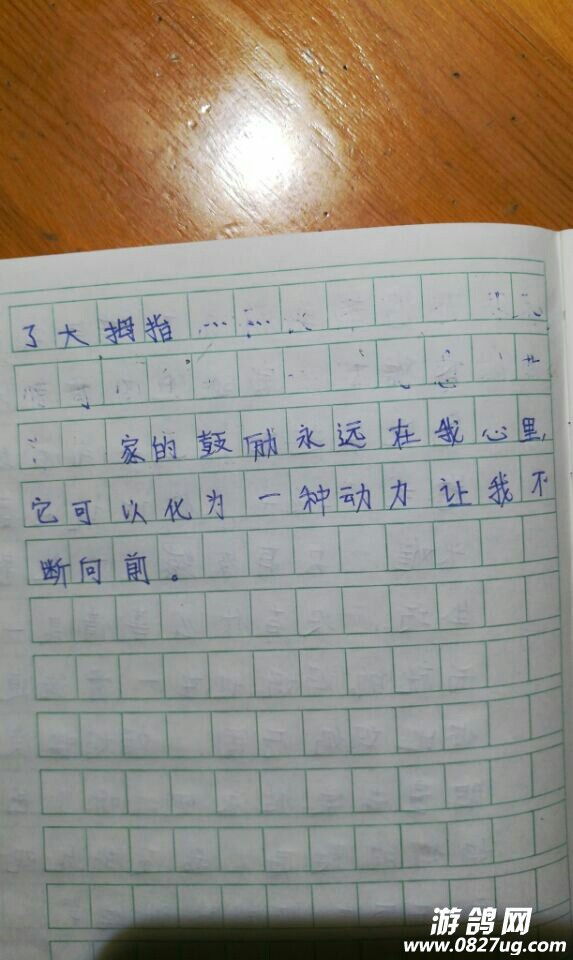 了大拇指……
家的鼓励永远在我心里,
它可以化为一种动力让我不
断向前。
游鸽网
www.0827ug.com